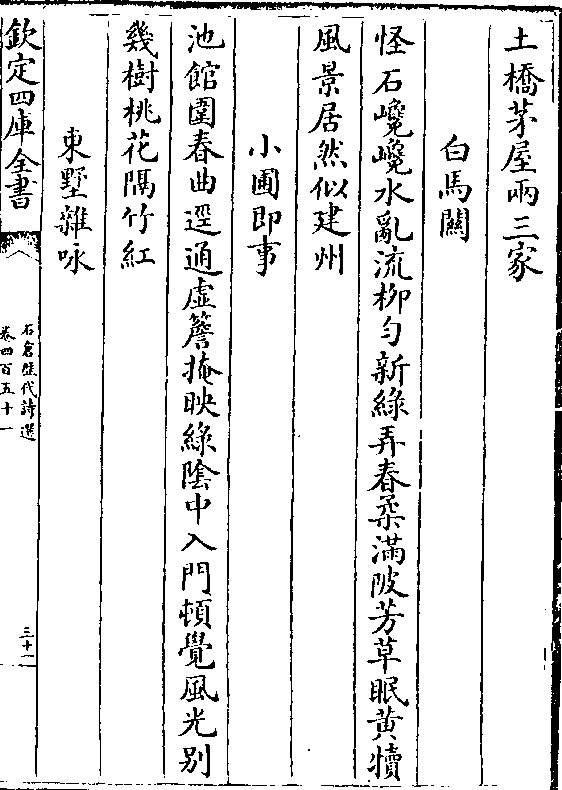 土橋茅屋兩三家
白馬關
怪石巉巉水亂流柳勻新綠弄春柔滿陂芳草眠黃犢
風景居然似建州
小圃即事
池館圍春曲逕通虛簷掩映綠陰中入門頓覺風光别
幾樹桃花隔竹紅
東墅雜咏
欽定四庫全書
石倉歷代詩選
卷四百五十一
三十一